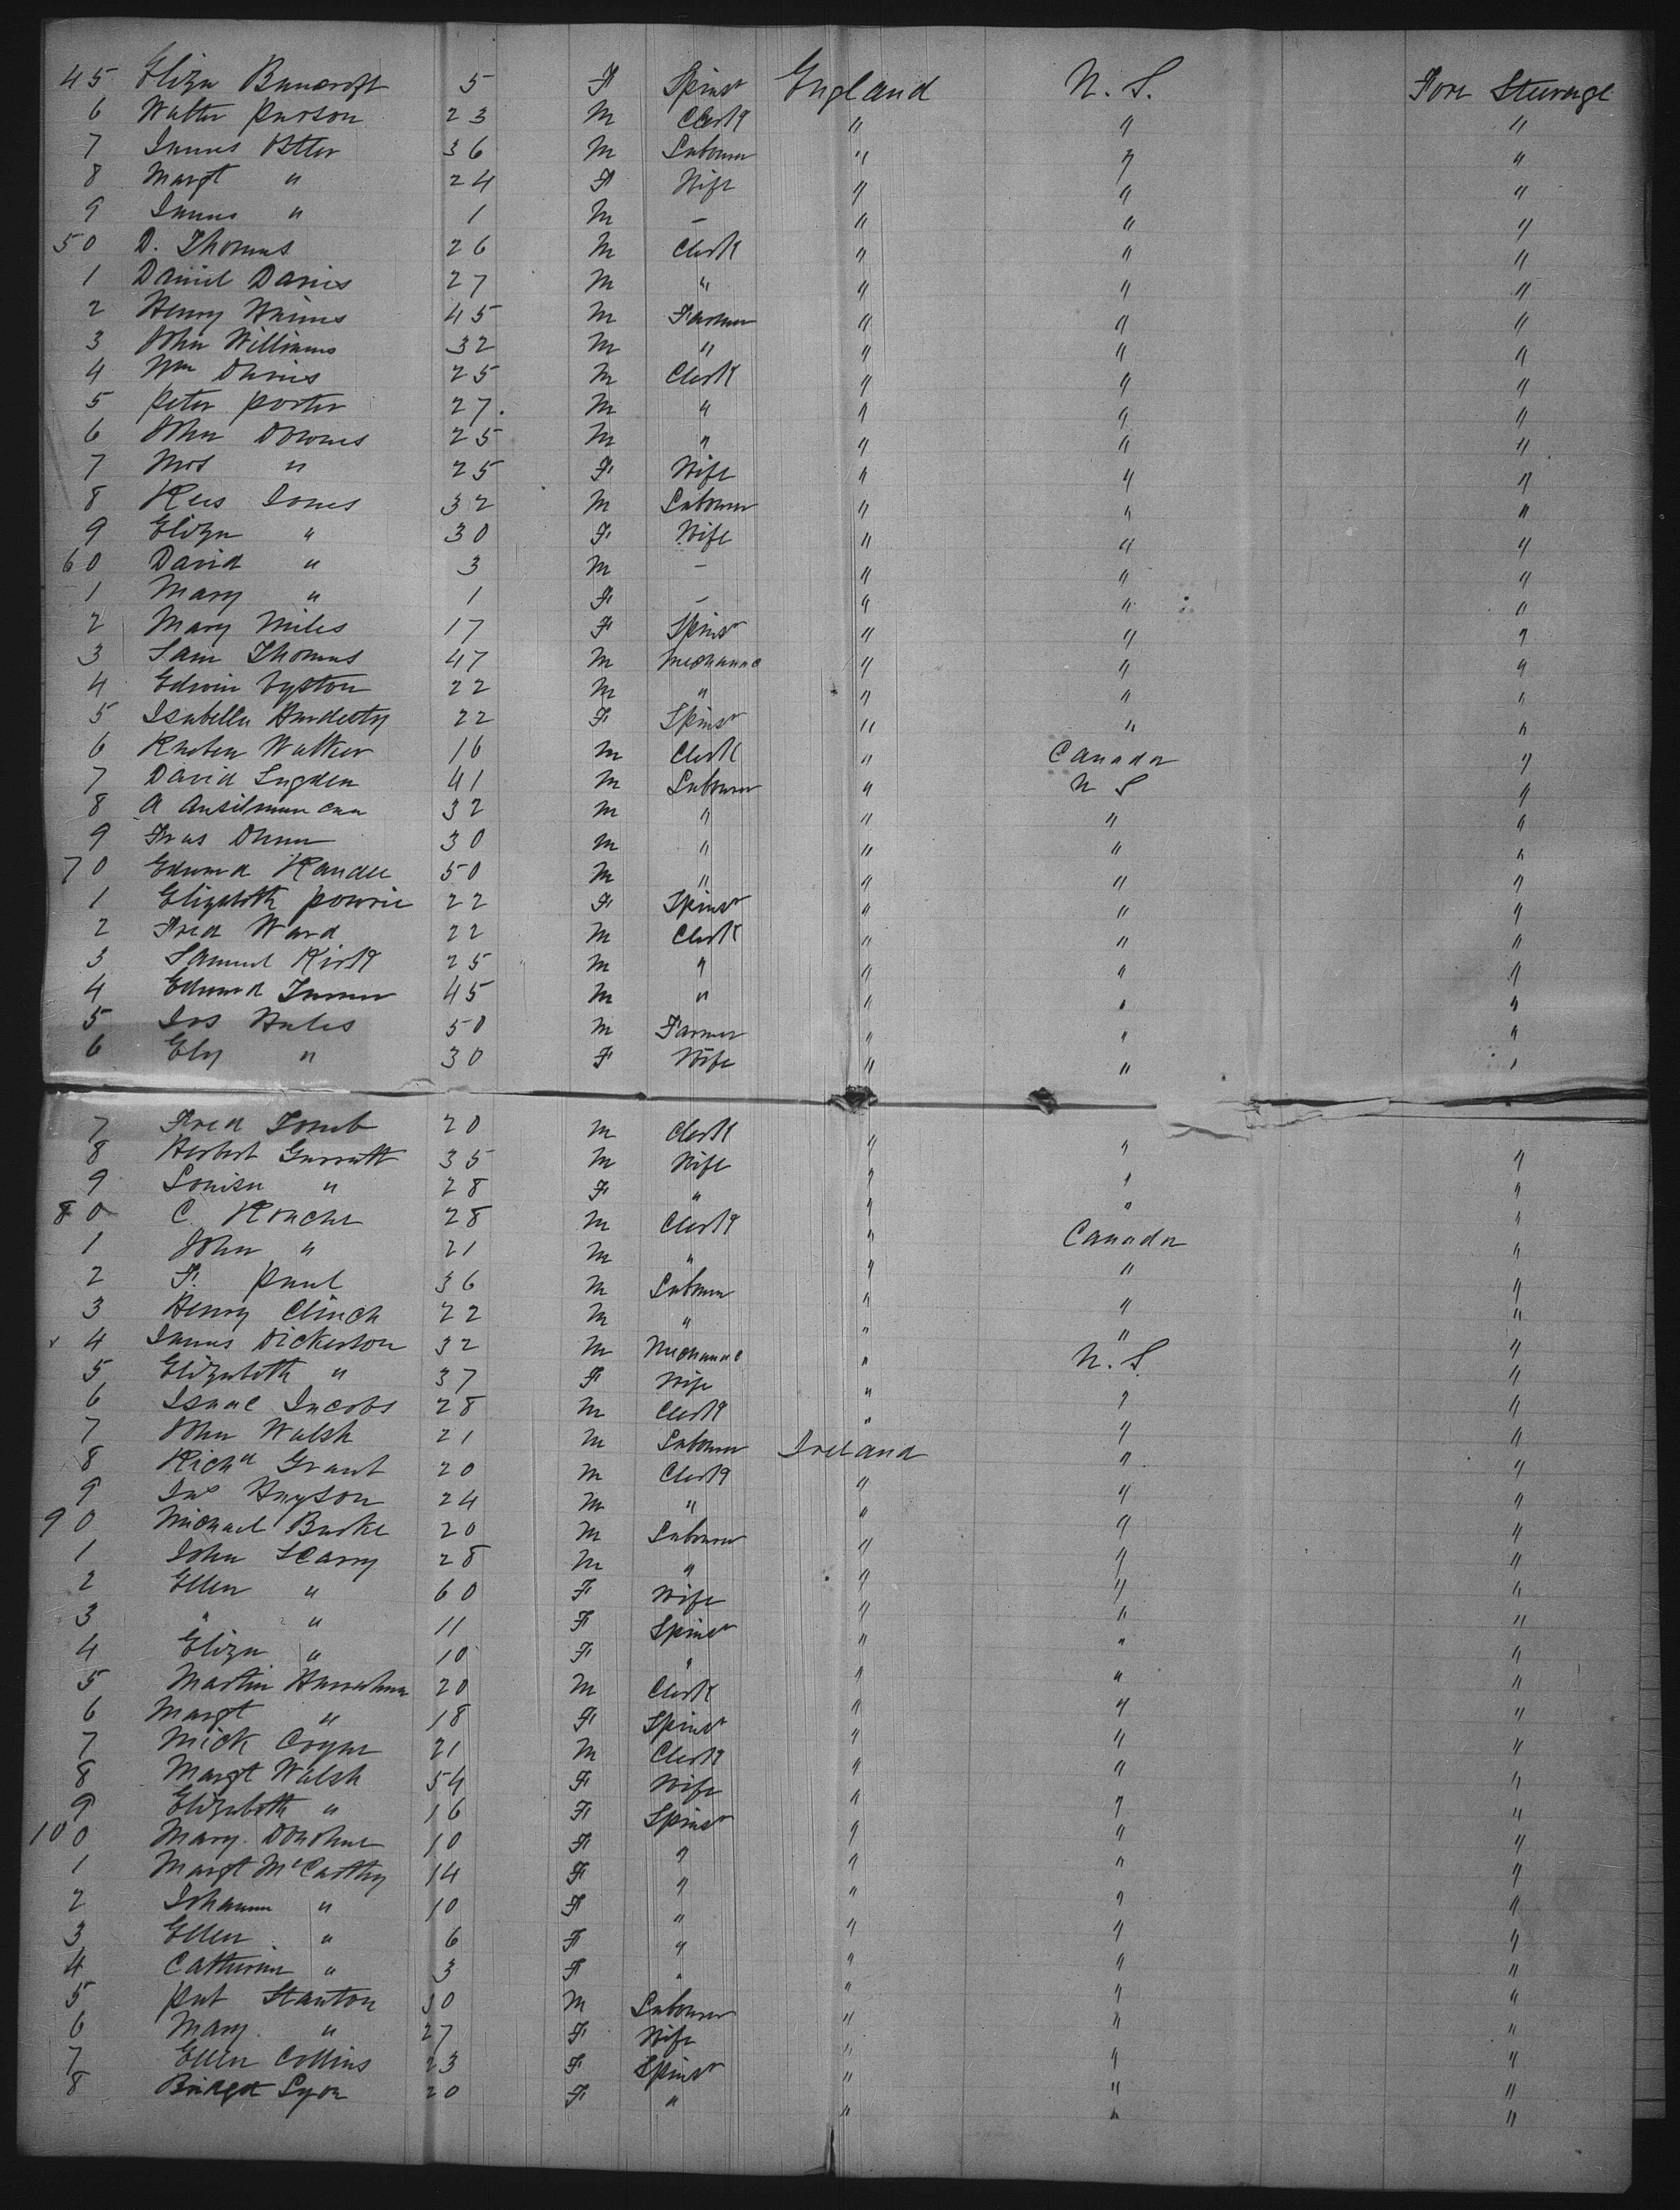 45 Eliza Bancroft 5 F Spinsr England U. S. Fore Steerage
6 Walter Parson 23 M Clerk " " "
7 James Otter 36 M Labourer " " "
8 Margt " 24 F Wife " " "
9 James " 1 M - " " "
50 D. Thomas 26 M Clerk " " "
1 Daniel Davies 27 M " " " "
2 Henry 45 M Farmer " " "
3 John Williams 32 M " " " "
4 Wm Davies 25 M Clerk " " "
5 Peter Porter 27. M " " " "
6 John Downes 25 M " " " "
7 Mrs " 25 F Wife " " "
8 Rees Jones 32 M Labourer " " "
9 Eliza " 30 F Wife " " "
60 David " 3 M - " " "
1 Mary " 1 F - " " "
2 Mary Miles 17 F Spinsr " " "
3 Sam Thomas 47 M Mechanic " " "
4 Edwin 22 M " " " "
5 Isabella Hardesty 22 F Spinsr " " "
6 Walker 16 M Clerk " Canada "
7 David Sugden 41 M Labourer " U S "
8 A 32 M " " " "
9 Fras Dunn 30 M " " " "
70 Edward Randle 50 M " " " "
1 Elizabeth Powrie 22 F Spinsr " " "
2 Fred Ward 22 M Clerk " " "
3 Samuel Kirk 25 M " " " "
4 Edward Turner 45 M " " " "
5 Jos Hales 50 M Farmer " " "
6 Ely " 30 F Wife " " "
7 Fred 20 M Clerk " " "
8 Herbert Garratt 35 M Wife " " "
9 Louisa " 28 F " " " "
80 C. Roache 28 M Clerk " Canada "
1 John " 21 M " " " "
2 F. Paul 36 M Labourer " " "
3 Henry Clinch 22 M " " " "
4 James Dickerson 32 M Mechanic " U. S. "
5 Elizabeth " 37 F Wife " " "
6 Isaac Jacobs 28 M Clerk " " "
7 John Walsh 21 M Labourer Ireland " "
8 Richd Grant 20 M Clerk " " "
9 Jas 24 M " " " "
90 Michael Burke 20 M Labourer " " "
1 John Scarry 28 M " " " "
2 Ellen " 60 F Wife " " "
3 " " 11 F Spinsr " " "
4 Eliza " 10 F " " " "
5 Martin Hanrahan 20 M Clerk " " "
6 Margt " 18 F Spinsr " " "
7 Mick Coyne 21 M Clerk " " "
8 Margt Walsh 54 F Wife " " "
9 Elizabeth " 16 F Spinsr " " "
100 Mary Donohue 10 F " " " "
1 Margt McCarthy 14 F " " " "
2 Johanna " 10 F " " " "
3 Ellen " 6 F " " " "
4 Catherine " 3 F " " " "
5 Pat Stanton 30 M Labourer " " "
6 Mary " 27 F Wife " " "
7 Ellen Collins 23 F Spinsr " " "
8 Bridget Lyon 20 F " " " "